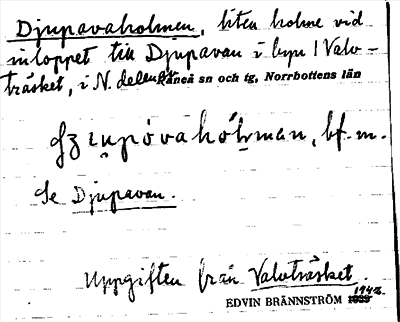 Djupavaholmen, liten holme vid
inloppet till Djupavan i byn / Valv-
träsket, i N. delen Råneå sn och tg, Norrbottens län
bf. m.
Se Djupavan.
Uppgiften från Valvträsket.
EDVIN BRÄNNSTRÖM 1942